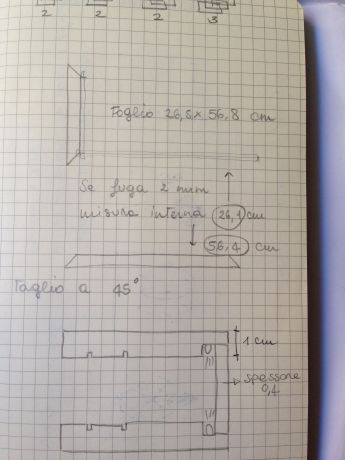 2 2 2 3
Foglio 26,5 x 56,8 cm
Se fuga 2 mm
misura interna 26,1 cm
56,4 cm
Taglio a 45°
1 cm
spessore
0,4